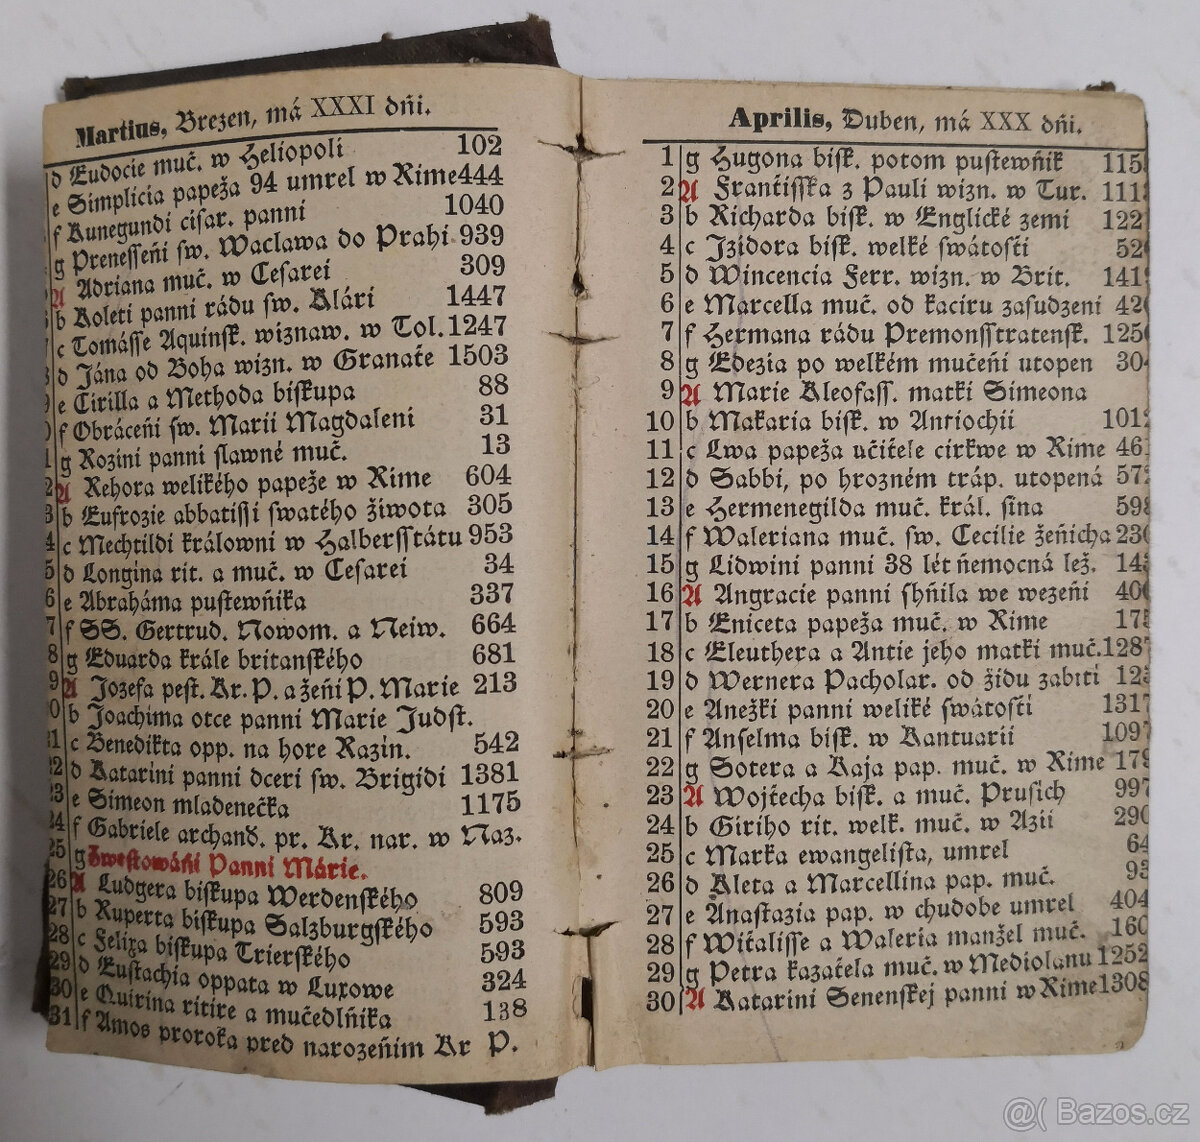 Martius, Březen, má XXXI dňi.
d Eudocie muč. w Heliopoli 102
e Simplicia papeža 94 umrel w Rime 444
f Kunegundi cisar. panni 1040
g Prenesseňi sw. Waclawa do Prahi 939
A Adriana muč. w Cesarei 309
b Koleti panni rádu sw. Klári 1447
c Tomásse Aquinsk. wiznaw. w Tol. 1247
d Jána od Boha wizn. w Granaťe 1503
9 e Cirilla a Methoda biskupa 88
0 f Obráceňi sw. Marii Magdaleni 31
1 g Rozini panni slawné muč. 13
2 A Rehora welikého papeže w Rime 604
3 b Eufrozie abbatissi swatého žiwota 305
4 c Mechtildi králowni w Halbersstátu 953
5 d Longina rit. a muč. w Cesarei 34
6 e Abraháma pustewňika 337
7 f SS. Gertrud. Nowom. a Neiw. 664
8 g Eduarda krále britanského 681
9 A Jozefa pest. Kr. P. a žeňi P. Marie 213
20 b Joachima otce panni Marie Judst.
21 c Benedikta opp. na hore Kazin. 542
22 d Katarini panni dceri sw. Brigidi 1381
23 e Simeon mladenečka 1175
24 f Gabriele archand. pr. Kr. nar. w Naz.
25 g Zwestowáňi Panni Márie.
26 A Ludgera biskupa Werdenského 809
27 b Ruperta biskupa Salzburgského 593
28 c Felixa biskupa Trierského 593
29 d Eustachia oppata w Luxowe 324
30 e Quirina ritire a mučedlňika 138
31 f Amos proroka pred narozeňim Kr P.
Aprilis, Duben, má XXX dňi.
1 g Hugona bisk. potom pustewňik 115
2 A Frantisska z Pauli wizn. w Tur. 111
3 b Richarda bisk. w Englické zemi 122
4 c Izidora bisk. welké swátosťi 52
5 d Wincencia Ferr. wizn. w Brit. 141
6 e Marcella muč. od kaciru zasudzeni 42
7 f Hermana rádu Premonsstratensk. 125
8 g Edezia po welkém mučeňi utopen 304
9 A Marie Kleofass. matki Simeona
10 b Makaria bisk. w Antiochii 101
11 c Lwa papeža učiťele cirkwe w Rime 461
12 d Sabbi, po hrozném tráp. utopená 572
13 e Hermenegilda muč. král. sina 598
14 f Waleriana muč. sw. Cecilie žeňicha 230
15 g Lidwini panni 38 lét ňemocná lež. 143
16 A Angracie panni shňila we wezeňi 400
17 b Eniceta papeža muč. w Rime 175
18 c Eleuthera a Antie jeho matki muč. 1287
19 d Wernera Pacholar. od židu zabiti 125
20 e Anežki panni weliké swátosťi 1317
21 f Anselma bisk. w Kantuarii 1097
22 g Sotera a Kaja pap. muč. w Rime 179
23 A Wojťecha bisk. a muč. Prusich 997
24 b Giriho rit. welk. muč. w Azii 290
25 c Marka ewangelista, umrel 64
26 d Kleta a Marcellina pap. muč. 93
27 e Anastazia pap. w chudobe umrel 404
28 f Witalisse a Waleria manžel muč. 160
29 g Petra kazaťela muč. w Mediolanu 1252
30 A Katarini Senenskej panni w Rime 1308
@( Bazos.cz